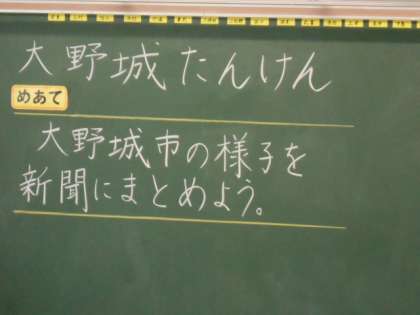 大野城たんけん
めあて
大野城市の様子を
新聞にまとめよう。